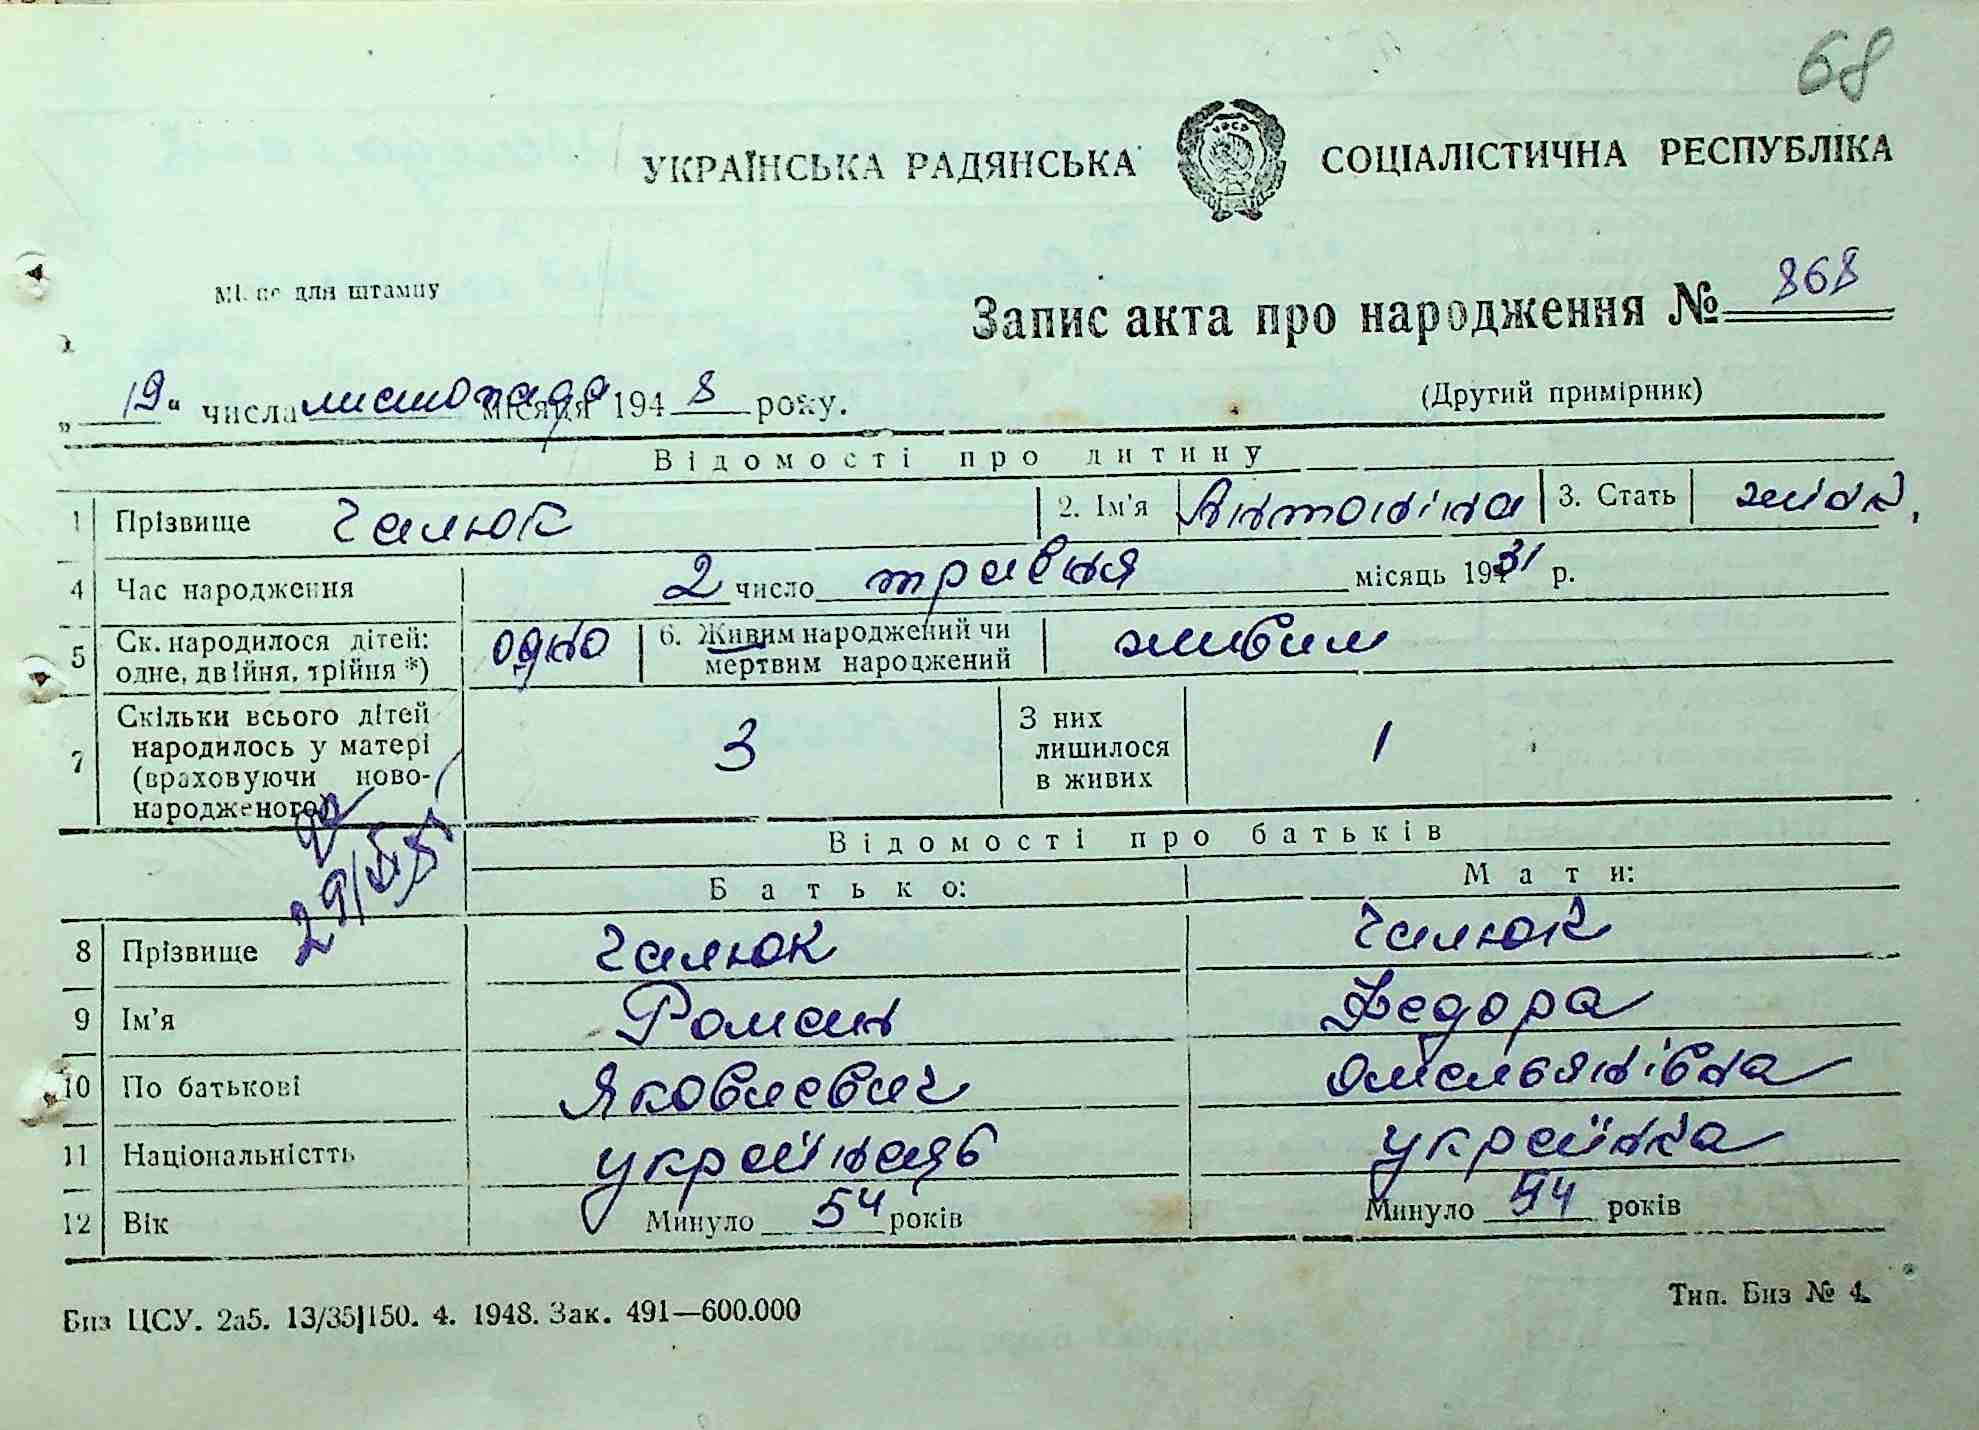 68
УКРАЇНСЬКА РАДЯНСЬКА СОЦІАЛІСТИЧНА РЕСПУБЛІКА
УРСР
для штампу
Запис акта про народження № 868
„ 19 " числа листопада місяця 1948 року.
(Другий примірник)
Відомості про дитину
1 Прізвище Чалюк 2. Ім'я Антоніна 3. Стать жіноч.
4 Час народження 2 число травня місяць 1931 р.
5 Ск. народилося дітей: одне, двійня, трійня *) одно 6. Живим народжений чи мертвим народжений живим
7 Скільки всього дітей народилось у матері (враховуючи новонародженого) 3 З них лишилося в живих 1
Відомості про батьків
Батько: Мати:
8 Прізвище Чалюк Чалюк
9 Ім'я Роман Федора
10 По батькові Яковлевич Омельянівна
11 Національністть українець українка
12 Вік Минуло 54 років Минуло 54 років
Биз ЦСУ. 2а5. 13/35|150. 4. 1948. Зак. 491—600.000
Тип. Биз № 4.